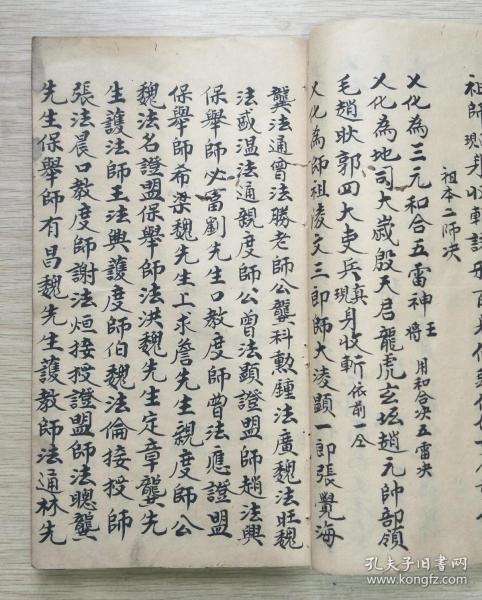 祖師現身收斬
祖本二师决
又化為三元和合五雷神王將 用和合决五雷决
又化為地司大歲殷天君龍虎玄坛趙元帥部領
毛趙狄郭四大吏兵真現身收斬依前一仝
又化為師祖凌文三郎師大凌顯一郎張覺海
龔法通曾法勝老師公龔科勲鍾法廣魏法旺魏
法温法通親度師公曾法顯證盟師趙法興
保舉師必富劉先生口教度師曾法應證盟
保舉師布梁魏先生上求詹先生親度師公
魏法名證盟保舉師法洪魏先生定章龔先
生護法師王法興護度師伯魏法倫接授師
張法晨口教度師謝法烜接授證盟師法聰龔
先生保舉師有昌魏先生護教師法通林先
孔夫子旧书网
www.kongfz.com